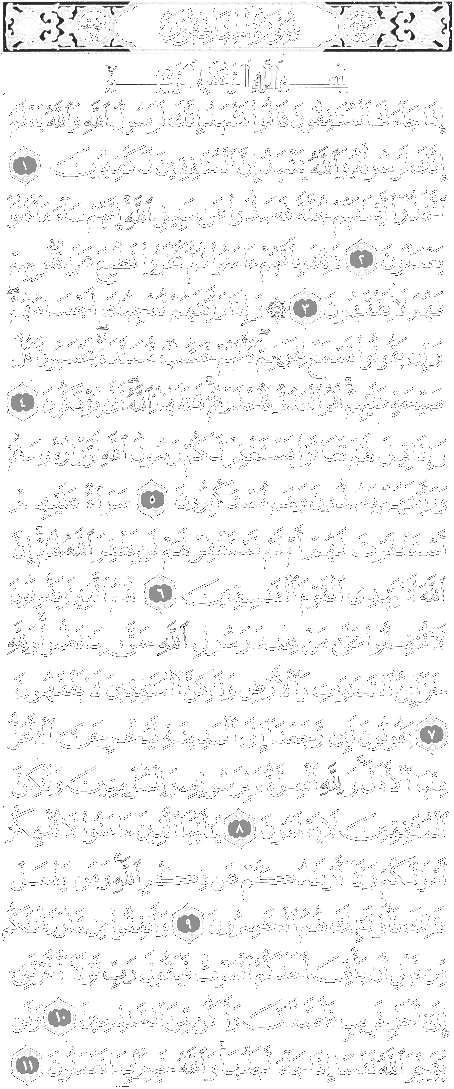 سُورَةُ المُنَافِقُونَ
بِسْمِ اللَّهِ الرَّحْمَٰنِ الرَّحِيمِ
إِذَا جَاءَكَ الْمُنَافِقُونَ قَالُوا نَشْهَدُ إِنَّكَ لَرَسُولُ اللَّهِ وَاللَّهُ يَعْلَمُ
إِنَّكَ لَرَسُولُهُ وَاللَّهُ يَشْهَدُ إِنَّ الْمُنَافِقِينَ لَكَاذِبُونَ ١
اتَّخَذُوا أَيْمَانَهُمْ جُنَّةً فَصَدُّوا عَن سَبِيلِ اللَّهِ إِنَّهُمْ سَاءَ مَا كَانُوا
يَعْمَلُونَ ٢ ذَٰلِكَ بِأَنَّهُمْ آمَنُوا ثُمَّ كَفَرُوا فَطُبِعَ عَلَىٰ قُلُوبِهِمْ
فَهُمْ لَا يَفْقَهُونَ ٣ ۞ وَإِذَا رَأَيْتَهُمْ تُعْجِبُكَ أَجْسَامُهُمْ
وَإِن يَقُولُوا تَسْمَعْ لِقَوْلِهِمْ كَأَنَّهُمْ خُشُبٌ مُّسَنَّدَةٌ يَحْسَبُونَ كُلَّ
صَيْحَةٍ عَلَيْهِمْ هُمُ الْعَدُوُّ فَاحْذَرْهُمْ قَاتَلَهُمُ اللَّهُ أَنَّىٰ يُؤْفَكُونَ ٤
وَإِذَا قِيلَ لَهُمْ تَعَالَوْا يَسْتَغْفِرْ لَكُمْ رَسُولُ اللَّهِ لَوَّوْا رُءُوسَهُمْ
وَرَأَيْتَهُمْ يَصُدُّونَ وَهُم مُّسْتَكْبِرُونَ ٥ سَوَاءٌ عَلَيْهِمْ
أَسْتَغْفَرْتَ لَهُمْ أَمْ لَمْ تَسْتَغْفِرْ لَهُمْ لَن يَغْفِرَ اللَّهُ لَهُمْ إِنَّ
اللَّهَ لَا يَهْدِي الْقَوْمَ الْفَاسِقِينَ ٦ هُمُ الَّذِينَ يَقُولُونَ
لَا تُنفِقُوا عَلَىٰ مَنْ عِندَ رَسُولِ اللَّهِ حَتَّىٰ يَنفَضُّوا وَلِلَّهِ
خَزَائِنُ السَّمَاوَاتِ وَالْأَرْضِ وَلَٰكِنَّ الْمُنَافِقِينَ لَا يَفْقَهُونَ
٧ يَقُولُونَ لَئِن رَّجَعْنَا إِلَى الْمَدِينَةِ لَيُخْرِجَنَّ الْأَعَزُّ
مِنْهَا الْأَذَلَّ وَلِلَّهِ الْعِزَّةُ وَلِرَسُولِهِ وَلِلْمُؤْمِنِينَ وَلَٰكِنَّ
الْمُنَافِقِينَ لَا يَعْلَمُونَ ٨ يَا أَيُّهَا الَّذِينَ آمَنُوا لَا تُلْهِكُمْ
أَمْوَالُكُمْ وَلَا أَوْلَادُكُمْ عَن ذِكْرِ اللَّهِ وَمَن يَفْعَلْ
ذَٰلِكَ فَأُولَٰئِكَ هُمُ الْخَاسِرُونَ ٩ وَأَنفِقُوا مِن مَّا رَزَقْنَاكُم
مِّن قَبْلِ أَن يَأْتِيَ أَحَدَكُمُ الْمَوْتُ فَيَقُولَ رَبِّ لَوْلَا أَخَّرْتَنِي
إِلَىٰ أَجَلٍ قَرِيبٍ فَأَصَّدَّقَ وَأَكُن مِّنَ الصَّالِحِينَ ١٠ وَلَن
يُؤَخِّرَ اللَّهُ نَفْسًا إِذَا جَاءَ أَجَلُهَا وَاللَّهُ خَبِيرٌ بِمَا تَعْمَلُونَ ١١